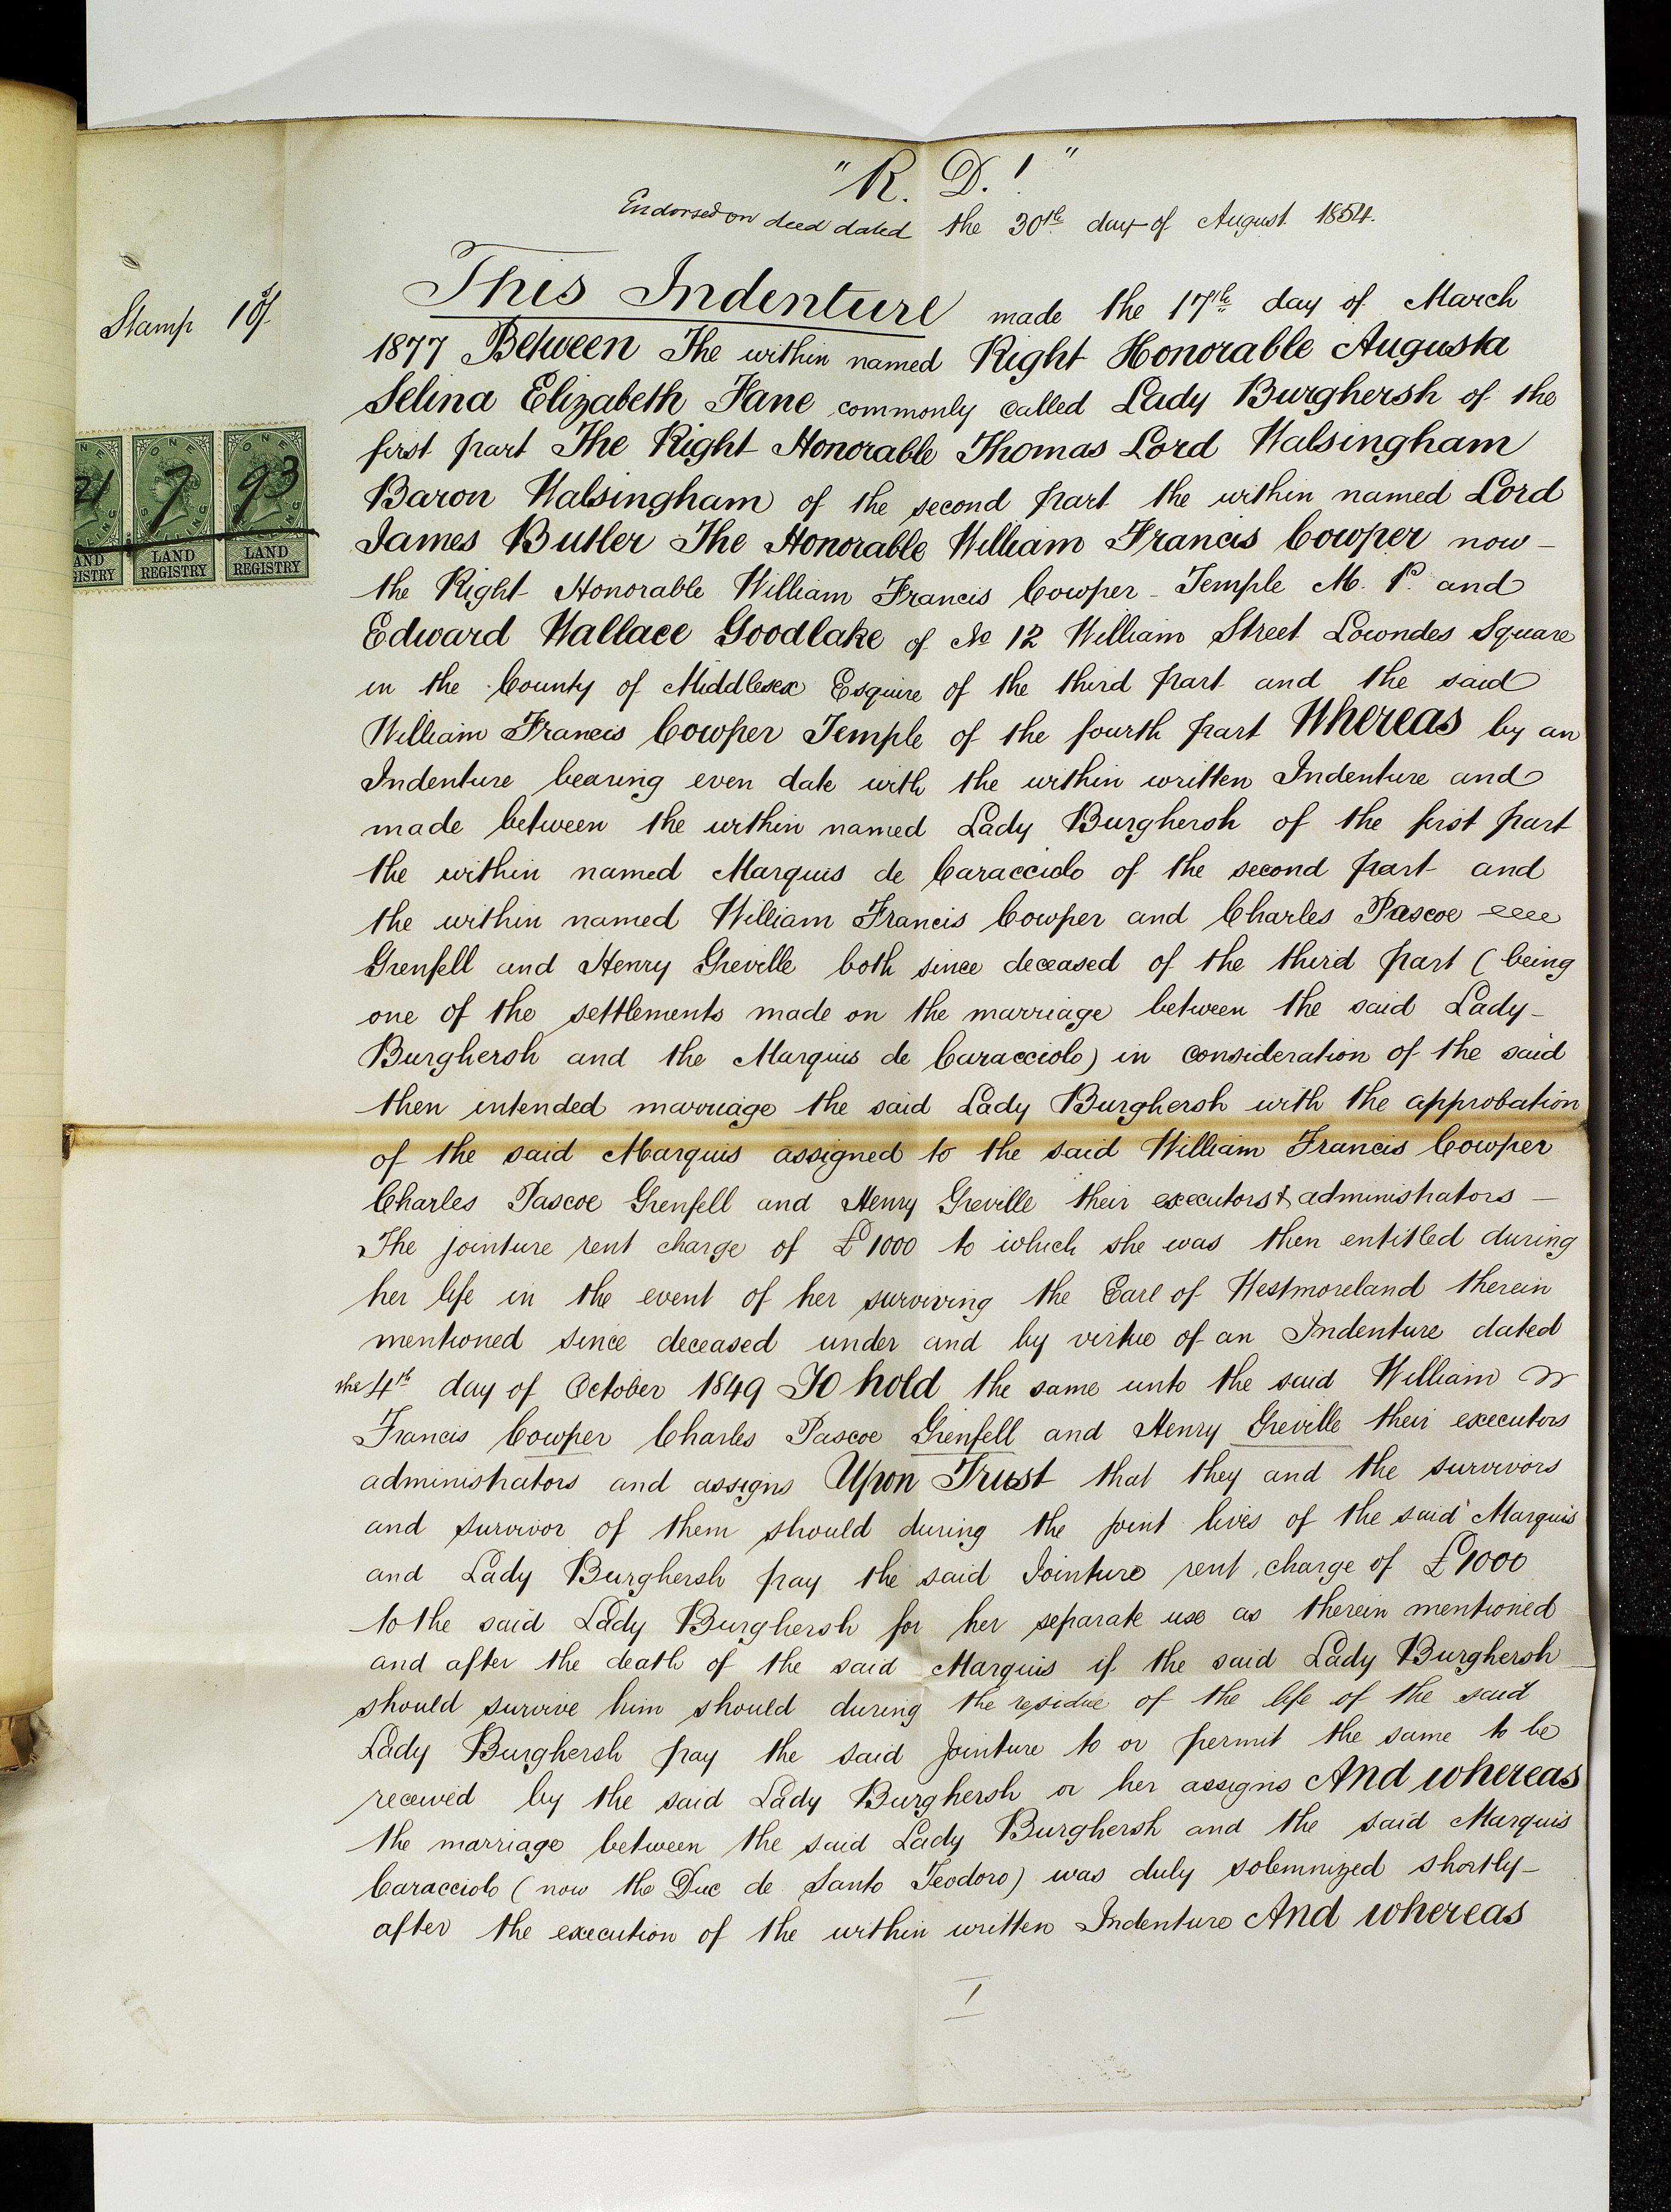 "R. D. 1"
Endorsed on deed dated the 30th day of August 1854.
Stamp 10/
This Indenture made the 17th day of March
1877 Between The within named Right Honorable Augusta
Selina Elizabeth Fane commonly called Lady Burghersh of the
first part The Right Honorable Thomas Lord Walsingham
Baron Walsingham of the second part the within named Lord
James Butler The Honorable William Francis Cowper now -
the Right Honorable William Francis Cowper - Temple M. P. and
Edward Wallace Goodlake of No 12 William Street Lowndes Square
in the County of Middlesex Esquire of the third part and the said
William Francis Cowper Temple of the fourth part Whereas by an
Indenture bearing even date with the within written Indenture and
made between the within named Lady Burghersh of the first part
the within named Marquis de Caracciolo of the second part and
the within named William Francis Cowper and Charles Pascoe
Grenfell and Henry Greville both since deceased of the third part (being
one of the settlements made on the marriage between the said Lady -
Burghersh and the Marquis de Caracciolo) in consideration of the said
then intended marriage the said Lady Burghersh with the approbation
of the said Marquis assigned to the said William Francis Cowper
Charles Pascoe Grenfell and Henry Greville their executors & administrators -
The jointure rent charge of £1000 to which she was then entitled during
her life in the event of her surviving the Earl of Westmoreland therein
mentioned since deceased under and by virtue of an Indenture dated
the 4th day of October 1849 To hold the same unto the said William
Francis Cowper Charles Pascoe Grenfell and Henry Greville their executors
administrators and assigns Upon Trust that they and the survivors
and survivor of them should during the joint lives of the said Marquis
and Lady Burghersh pay the said Jointure rent charge of £1000
to the said Lady Burghersh for her separate use as therein mentioned
and after the death of the said Marquis if the said Lady Burghersh
should survive him should during the residue of the life of the said
Lady Burghersh pay the said Jointure to or permit the same to be
received by the said Lady Burghersh or her assigns And whereas
the marriage between the said Lady Burghersh and the said Marquis
Caracciolo (now the Duc de Santo Teodoro) was duly solemnized shortly -
after the execution of the within written Indenture And whereas
1
21 7 93
ONE ONE
AND LAND LAND
GISTRY REGISTRY REGISTRY